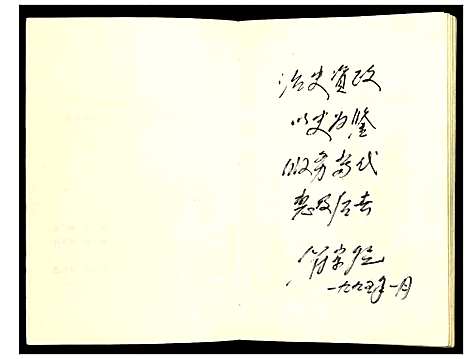 治史资政
以史为鉴
服务当代
惠及后去
一九九五年一月